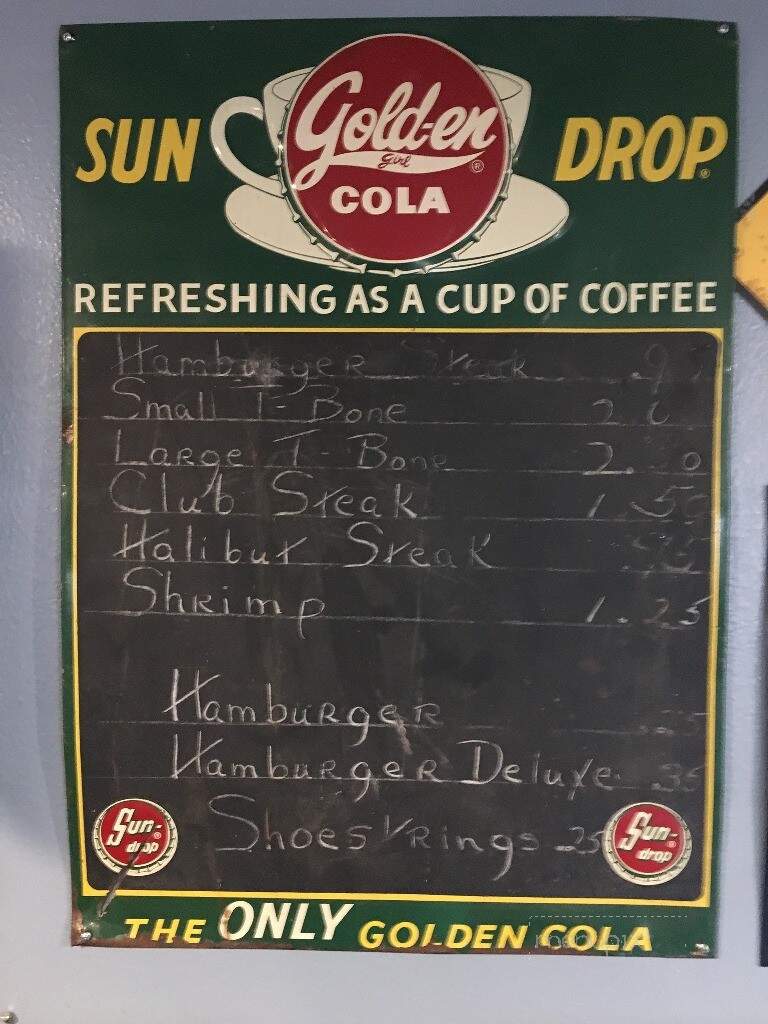 SUN Gold-en Girl ® COLA DROP®
REFRESHING AS A CUP OF COFFEE
Hamburger Steak
Small T-Bone
Large T-Bone
Club Steak 1.50
Halibut Steak
Shrimp 1.25
Hamburger
Hamburger Deluxe 35
Shoestrings .25
Sun-drop® Sun-drop®
THE ONLY GOLDEN COLA